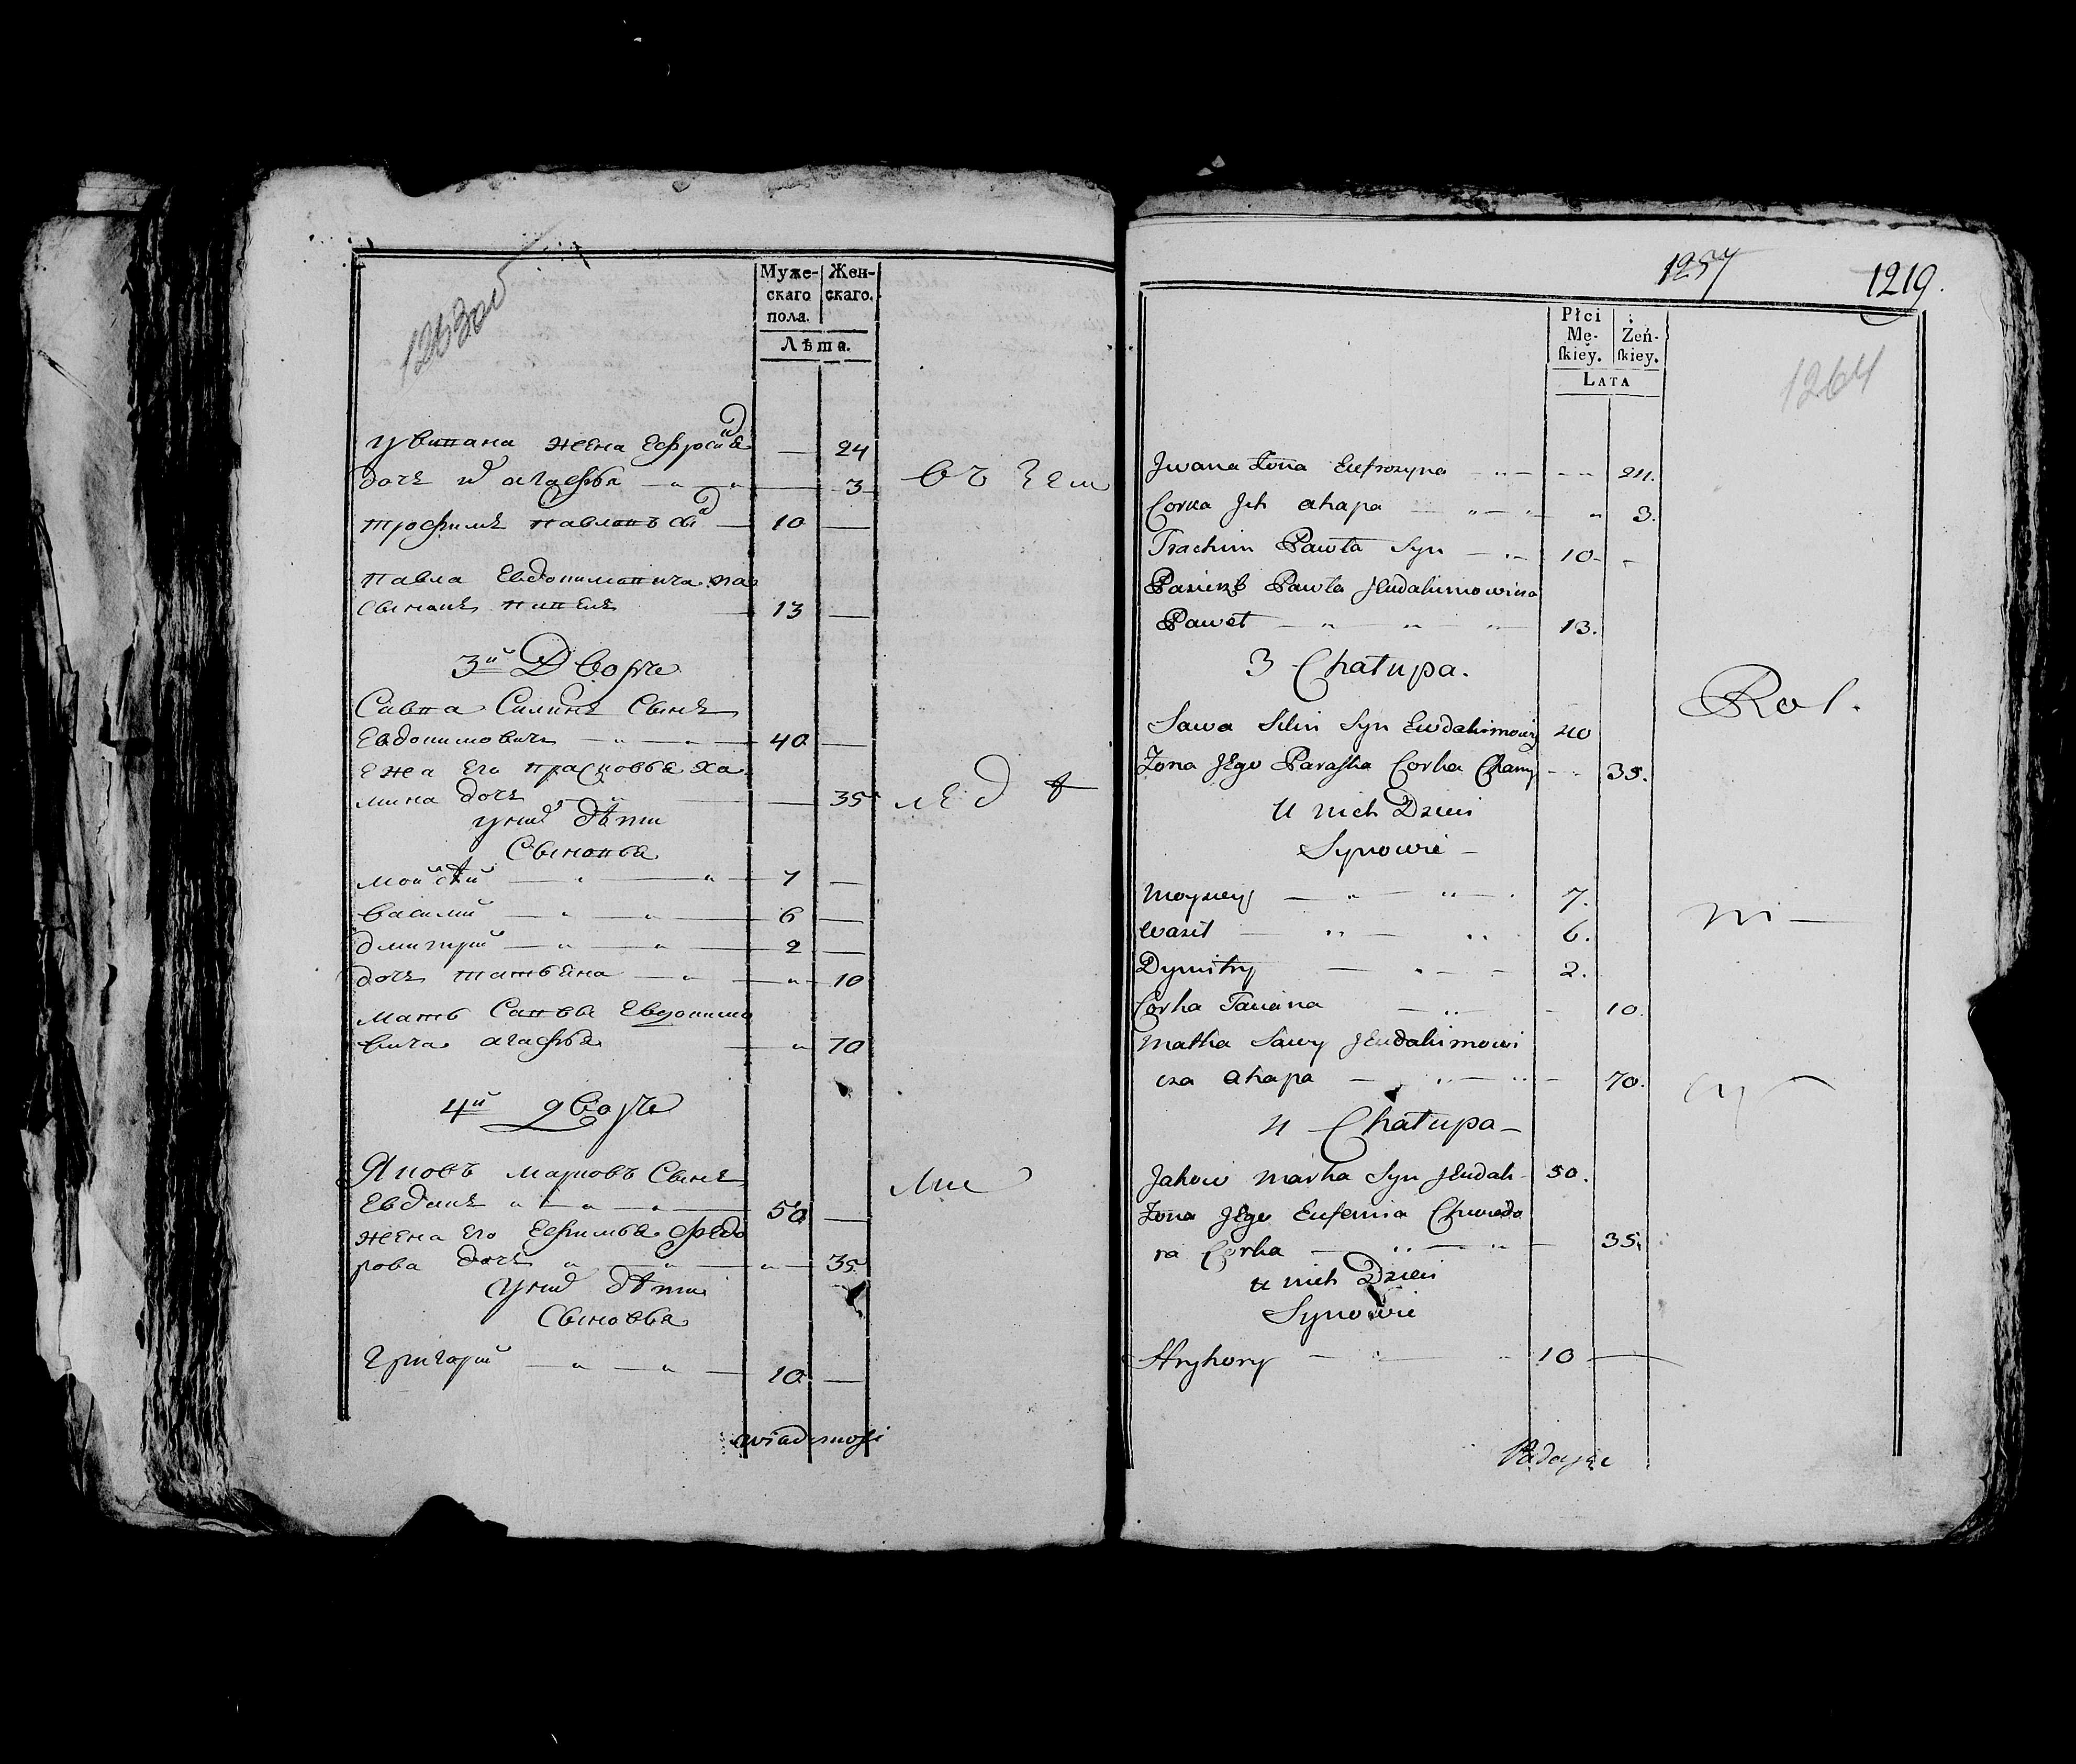 1263 об
Муже- Жен-
скаго скаго.
пола.
Лѣта.
у Ивана жена Ефросиня — 24
дочь их агафья — 3
трофимъ павловъ сы͏н 10 —
павла Евдокимовича па
сынокъ павелъ 13 —
3й Дворъ
Савва Силинъ Сынъ
Евдокимовичъ 40 —
жена Его прасковья ха
мина дочь — 35
у них дѣти
Сыновья
мойсѣй 7 —
василий 6 —
дмитрий 2 —
дочь татьяна 10
мать Саввы Евдокимо
вича агафья 70
4й дворъ
Яковъ марковъ Сынъ
Евдаких 50 —
жена Его Ефимья федо
рова дочь 35
у них дѣти
Сыновья
Григорий 10 —
въ Зем
лед
ли
wiadomości
1257
1219.
1264
Płci
Mę- Żeń-
ſkiey. ſkiey.
LATA
Jwana Żona Eufrozyna 24.
Corka Jch ahapa 3.
Trachim Pawła Syn 10 -
Pasierzb Pawła JEudakimowicza
Paweł 13.
3 Chałupa.
Sawa Silin Syn Eudakimowicz 40
Żona JEgo Paraſka Corka Chamy 35.
U nich Dzieci
Synowie
Moyzey 7.
Wasil 6.
Dymitry 2.
Corka Taciana 10.
Matka Sawy JEudakimowi
cza ahapa 70.
4 Chałupa
Jakow Marka Syn JEudak 50.
Żona JEgo Eufemia Chwedo
ra Corka 35.
u nich Dzieci
Synowie
Hryhory 10 —
Rol.
ni
cy
Podaję